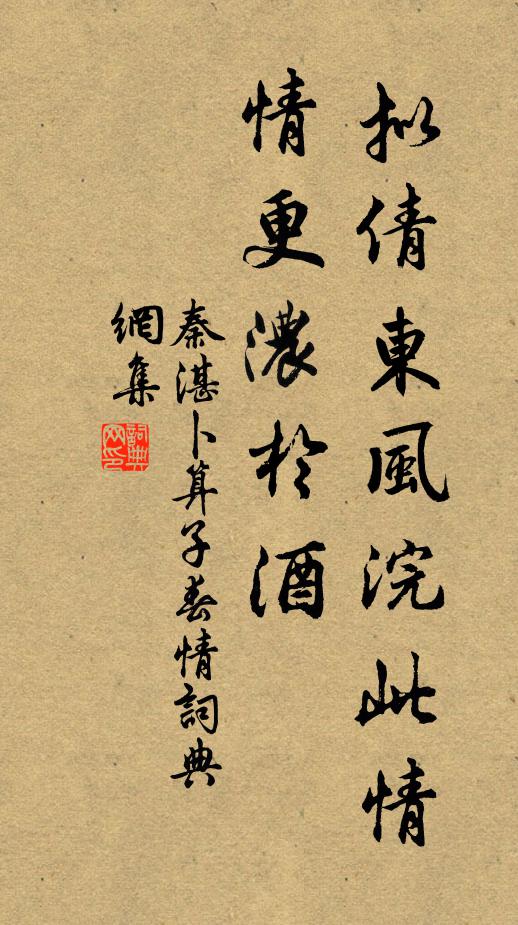 拟倩東風浣此情
情更濃於酒
秦湛卜算子春情詞典
網集
詞典网印